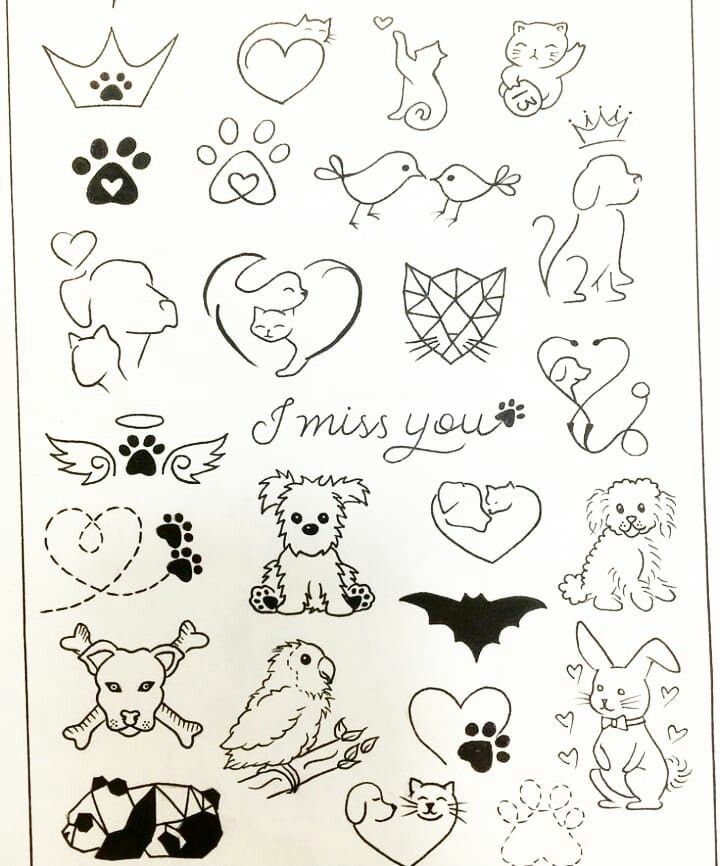 13
I miss you